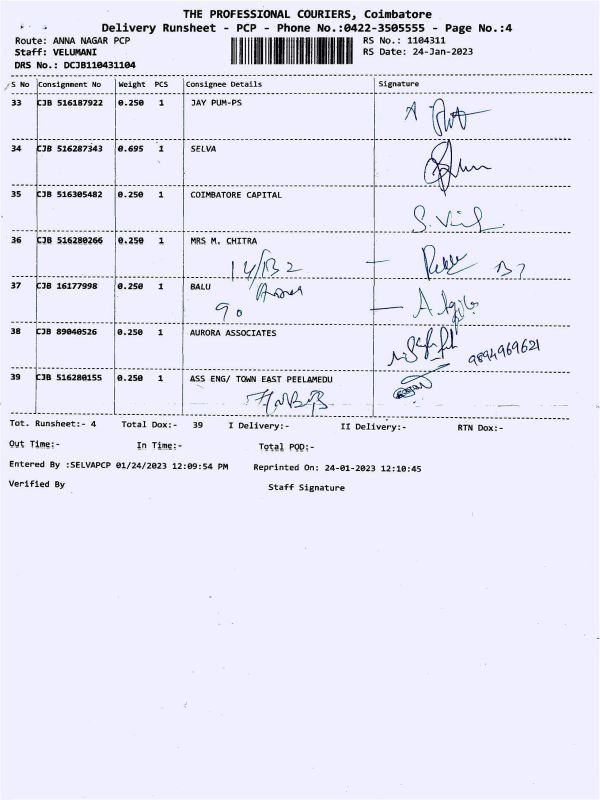 THE PROFESSIONAL COURIERS, Coimbatore
Delivery Runsheet - PCP - Phone No.:0422-3505555 - Page No.:4
Route: ANNA NAGAR PCP RS No.: 1104311
Staff: VELUMANI RS Date: 24-Jan-2023
DRS No.: DCJB110431104
S No Consignment No Weight PCS Consignee Details Signature
33 CJB 516187922 0.250 1 JAY PUM-PS
34 CJB 516287343 0.695 1 SELVA
35 CJB 516305482 0.250 1 COIMBATORE CAPITAL
36 CJB 516280266 0.250 1 MRS M. CHITRA
37 CJB 16177998 0.250 1 BALU
90
38 CJB 89040526 0.250 1 AURORA ASSOCIATES
9894969621
39 CJB 516280155 0.250 1 ASS ENG/ TOWN EAST PEELAMEDU
Tot. Runsheet:- 4 Total Dox:- 39 I Delivery:- II Delivery:- RTN Dox:-
Out Time:- In Time:- Total POD:-
Entered By :SELVAPCP 01/24/2023 12:09:54 PM Reprinted On: 24-01-2023 12:10:45
Verified By Staff Signature